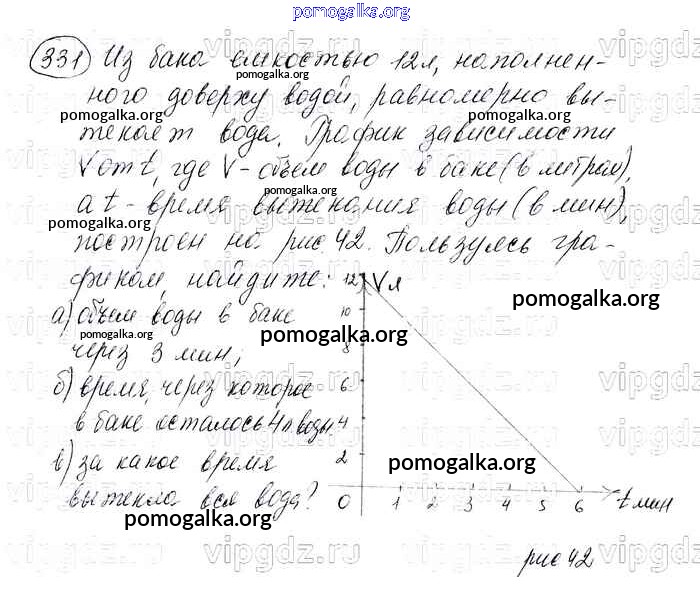 pomogalka.org
331 Из бака емкостью 12 л, наполнен-
ного доверху водой, равномерно вы-
текает вода. График зависимости
V от t, где V - объем воды в баке (в литрах),
а t - время вытекания воды (в мин),
построен на рис. 42. Пользуясь гра-
фиком, найдите:
а) объем воды в баке
через 3 мин;
б) время, через которое
в баке осталось 4 л воды.
в) за какое время
вытекла вся вода?
12 V л
10
8
6
4
2
0 1 2 3 4 5 6 t мин
рис 42
pomogalka.org
pomogalka.org
pomogalka.org
pomogalka.org
pomogalka.org
pomogalka.org
pomogalka.org
pomogalka.org
pomogalka.org
pomogalka.org
pomogalka.org
vipgdz.ru